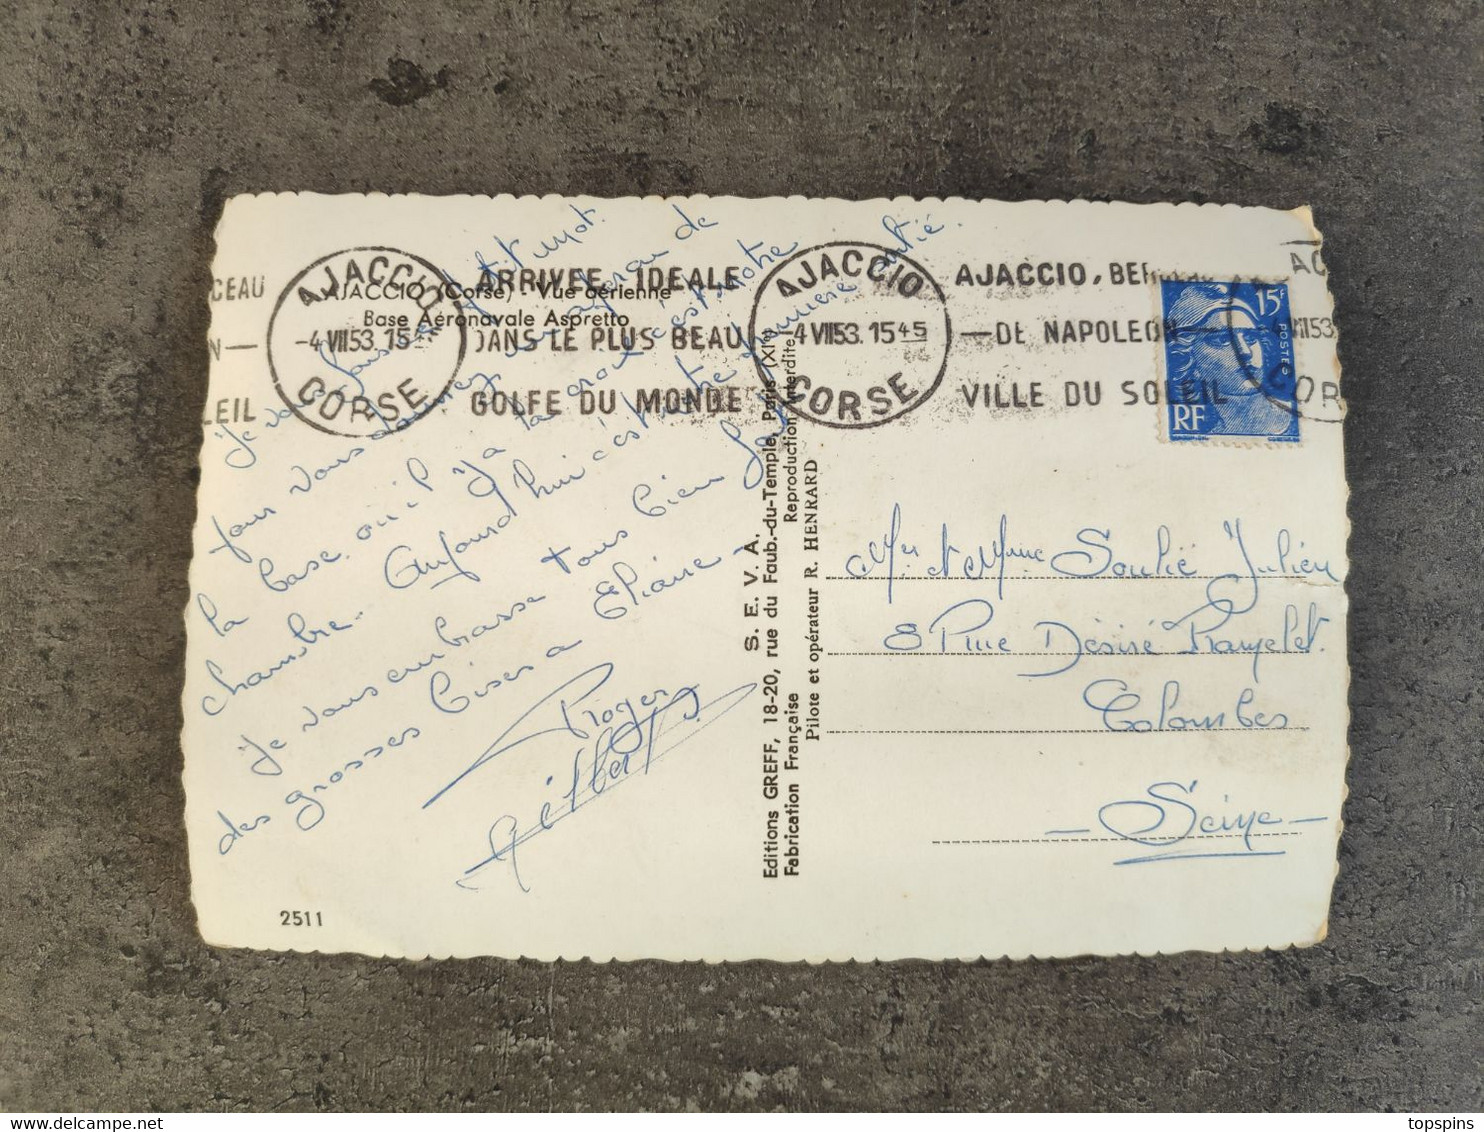 AJACCIO (Corse) - Vue aérienne
Base Aéronavale Aspretto
CEAU
N—
LEIL
AJACCIO
-4 VII 53. 15
CORSE
ARRIVEE IDEALE
DANS LE PLUS BEAU
GOLFE DU MONDE
AJACCIO
-4 VII 53. 15 45
CORSE
AJACCIO, BER
—DE NAPOLEON—
VILLE DU SOLEIL
AC
4 VII 53
COR
15F
POSTES
RF
Je vous fais petit mot.
pour vous donner un aperçu de
la base où il y a la croix c'est notre
chambre. Aujourd'hui c'est notre première sortie.
Je vous embrasse tous bien fort
des grosses bises a Eliane -
Roger
Gilbert
2511
S. E. V. A.
Editions GREFF, 18-20, rue du Faub.-du-Temple, Paris (XIe)
Fabrication Française
Reproduction Interdite
Pilote et opérateur R. HENRARD
Mer et Mme Soulié Julien
8 Rue Désiré Ramelet
Colombes
— Seine —
topspins